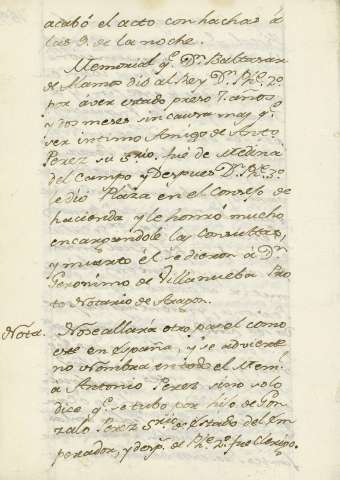 acabó el acto con hachas á
las 9. de la noche.
Memorial q.e D.n Baltasar
de Alamos dió al Rey D.n Ph.e 2.o
por aver estado preso 7. años
y dos meses sin causa mas q.e
ser intimo Amigo de Anto
Perez su Srio, fue de Medina
del Campo y despues D.n Ph.e 3.o
le dió Plaza en el Consejo de
hacienda y le honró mucho
encargandole las Consultas,
y muerto él se dieron á D.n
Geronimo de Villanueba Pro
to Notario de Aragon.
Nota. No se allará otro papel como
este en España, y se advierte
no Nombra en todo el Mem.l
a Antonio Perez sino solo
dice q.e se tubo por hijo de Gon
zalo Perez Srio de Estado del Em
perador, y desp.s de Ph.e 2.o fue Clerigo.